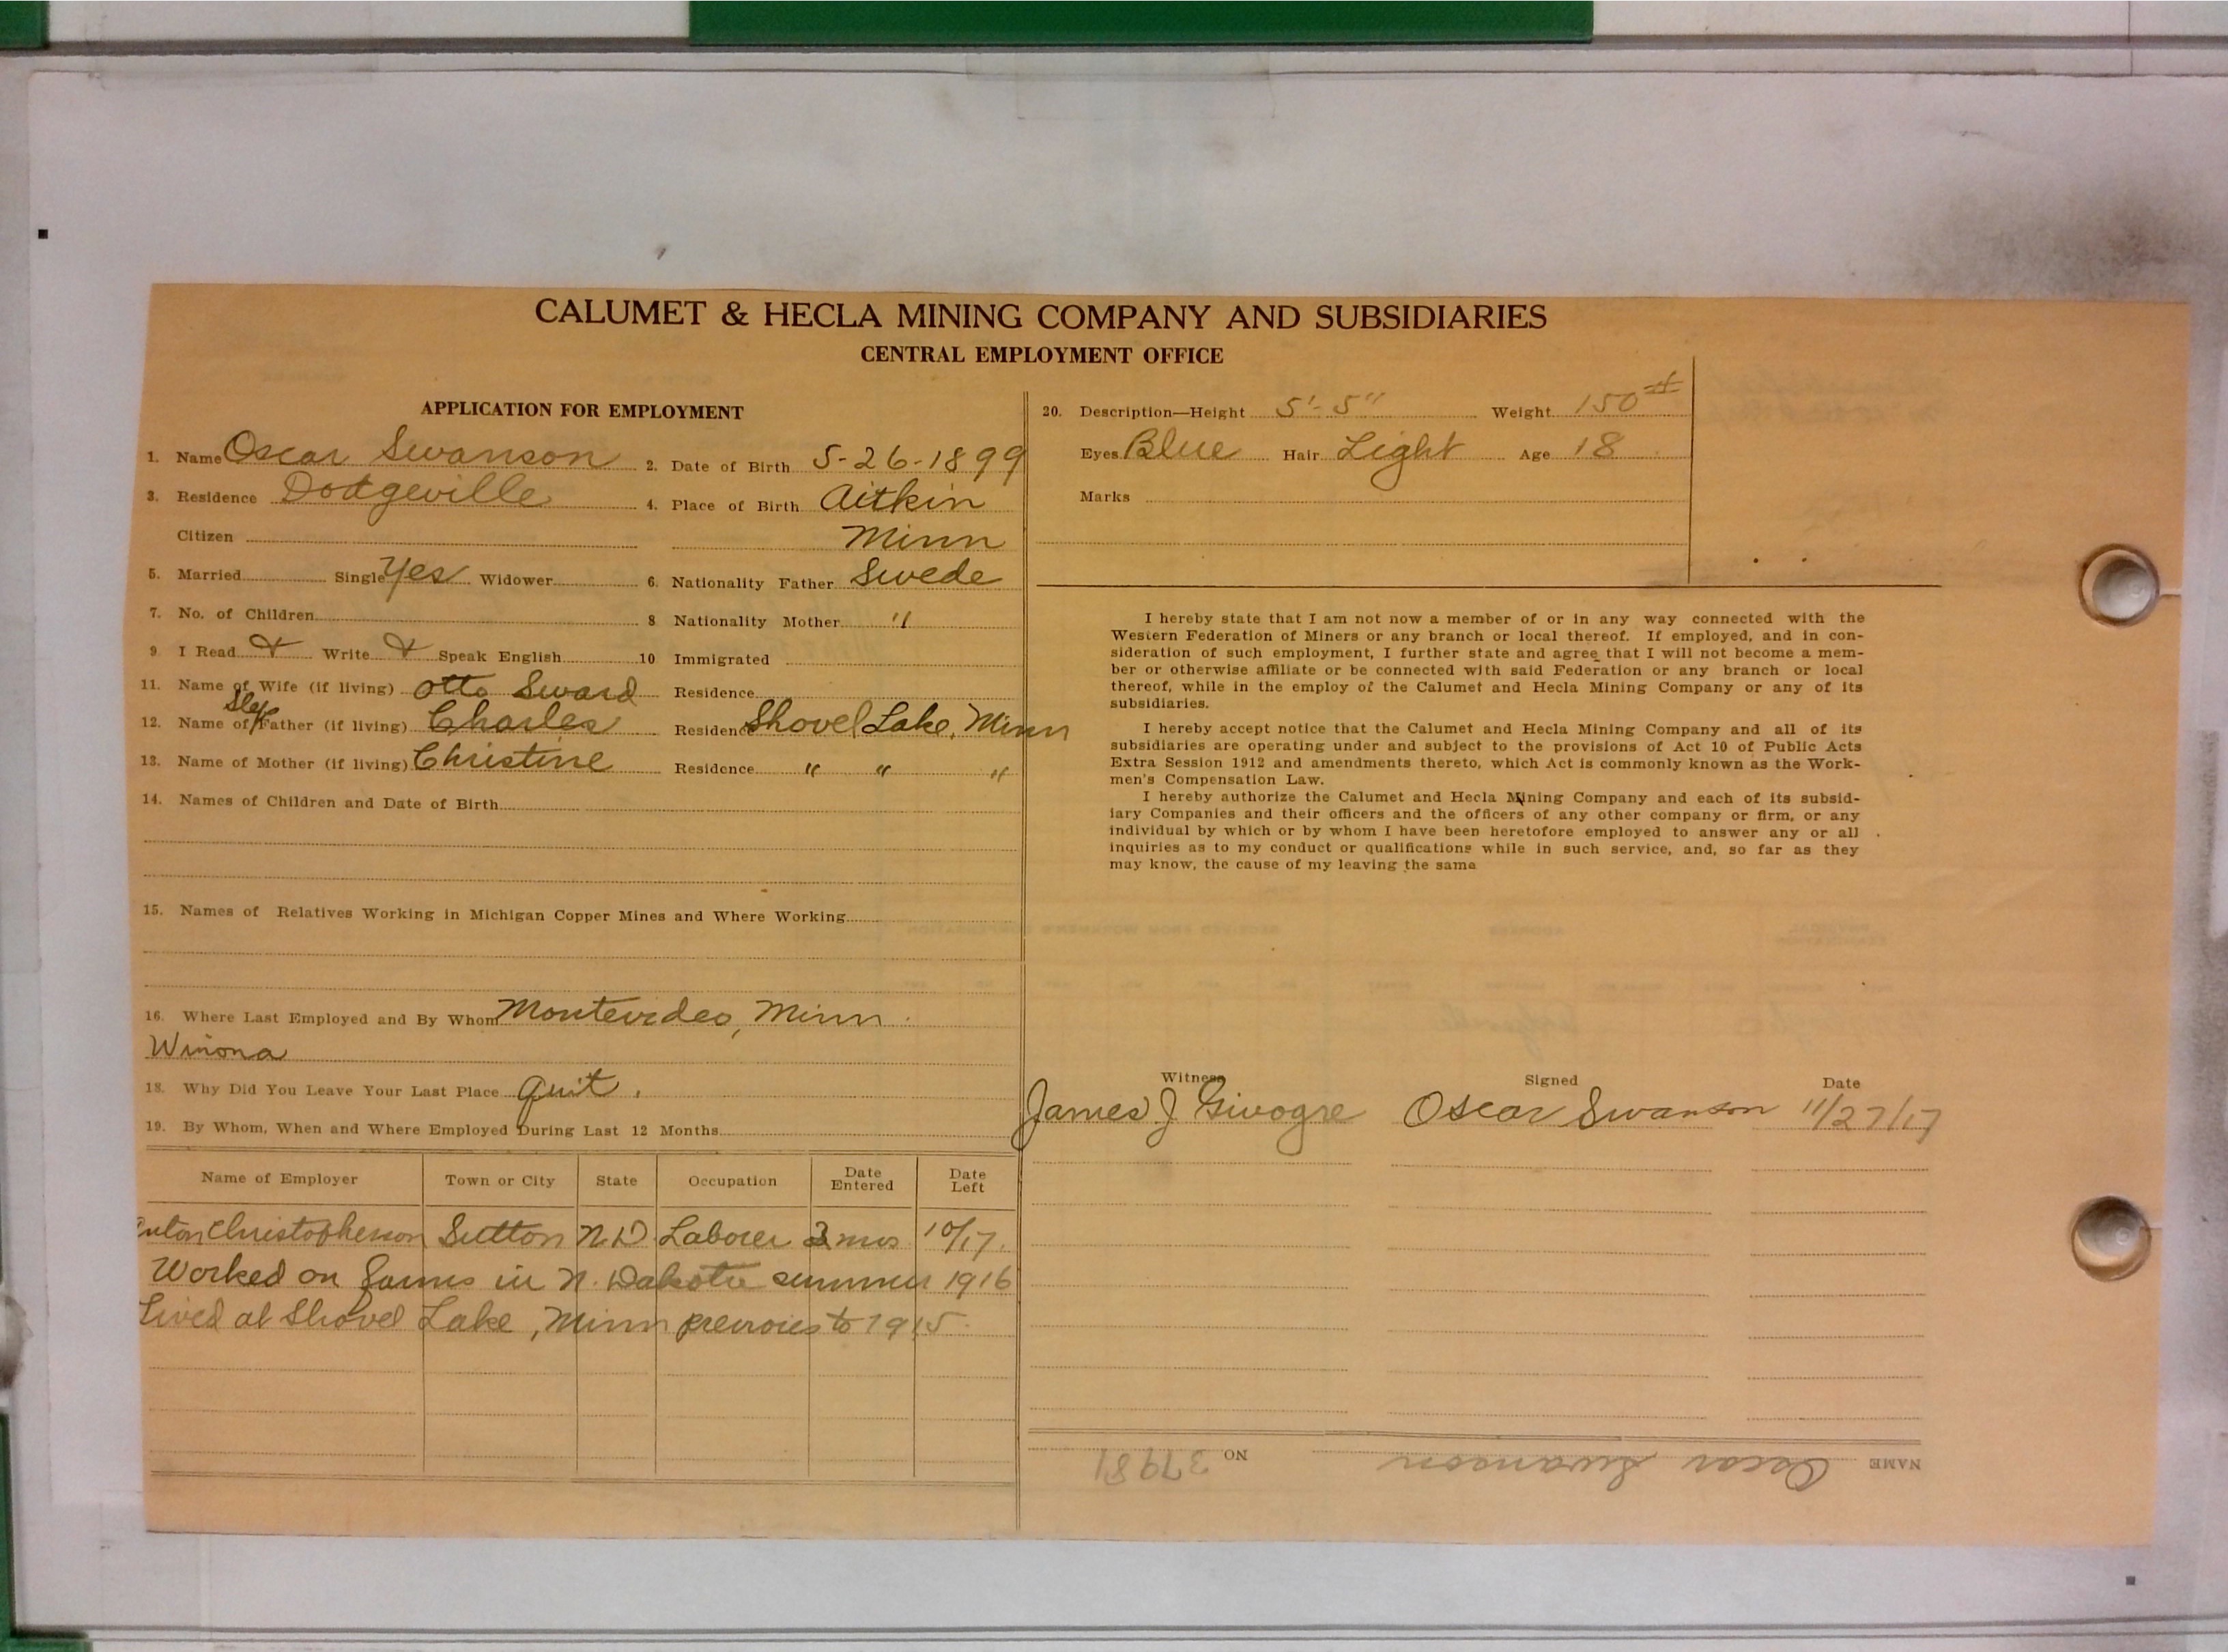 CALUMET & HECLA MINING COMPANY AND SUBSIDIARIES
CENTRAL EMPLOYMENT OFFICE
APPLICATION FOR EMPLOYMENT
1. Name Oscar Swanson 2. Date of Birth 5-26-1899
3. Residence Dodgeville 4. Place of Birth Aitkin
Citizen Minn
5. Married Single Yes Widower 6. Nationality Father Swede
7. No. of Children 8 Nationality Mother "
9. I Read & Write & Speak English 10 Immigrated
11. Name of Wife (if living) Otto Sward Residence
Step
12. Name of Father (if living) Charles Residence Shovel Lake, Minn
13. Name of Mother (if living) Christine Residence " " "
14. Names of Children and Date of Birth
15. Names of Relatives Working in Michigan Copper Mines and Where Working
16. Where Last Employed and By Whom Montevideo, Minn
Winona
18. Why Did You Leave Your Last Place quit.
19. By Whom, When and Where Employed During Last 12 Months
Name of Employer Town or City State Occupation Date Entered Date Left
Anton Christopherson Sutton N.D. Laborer 3 mos 10/17.
Worked on farms in N. Dakota summer 1916
Lived at Shovel Lake, Minn previous to 1915
20. Description—Height 5'-5" Weight 150#
Eyes Blue Hair Light Age 18
Marks
I hereby state that I am not now a member of or in any way connected with the
Western Federation of Miners or any branch or local thereof. If employed, and in con-
sideration of such employment, I further state and agree that I will not become a mem-
ber or otherwise affiliate or be connected with said Federation or any branch or local
thereof, while in the employ of the Calumet and Hecla Mining Company or any of its
subsidiaries.
I hereby accept notice that the Calumet and Hecla Mining Company and all of its
subsidiaries are operating under and subject to the provisions of Act 10 of Public Acts
Extra Session 1912 and amendments thereto, which Act is commonly known as the Work-
men's Compensation Law.
I hereby authorize the Calumet and Hecla Mining Company and each of its subsid-
iary Companies and their officers and the officers of any other company or firm, or any
individual by which or by whom I have been heretofore employed to answer any or all
inquiries as to my conduct or qualifications while in such service, and, so far as they
may know, the cause of my leaving the same
Witness Signed Date
James J Oscar Swanson 11/27/17
NAME Oscar Swanson NO 37981